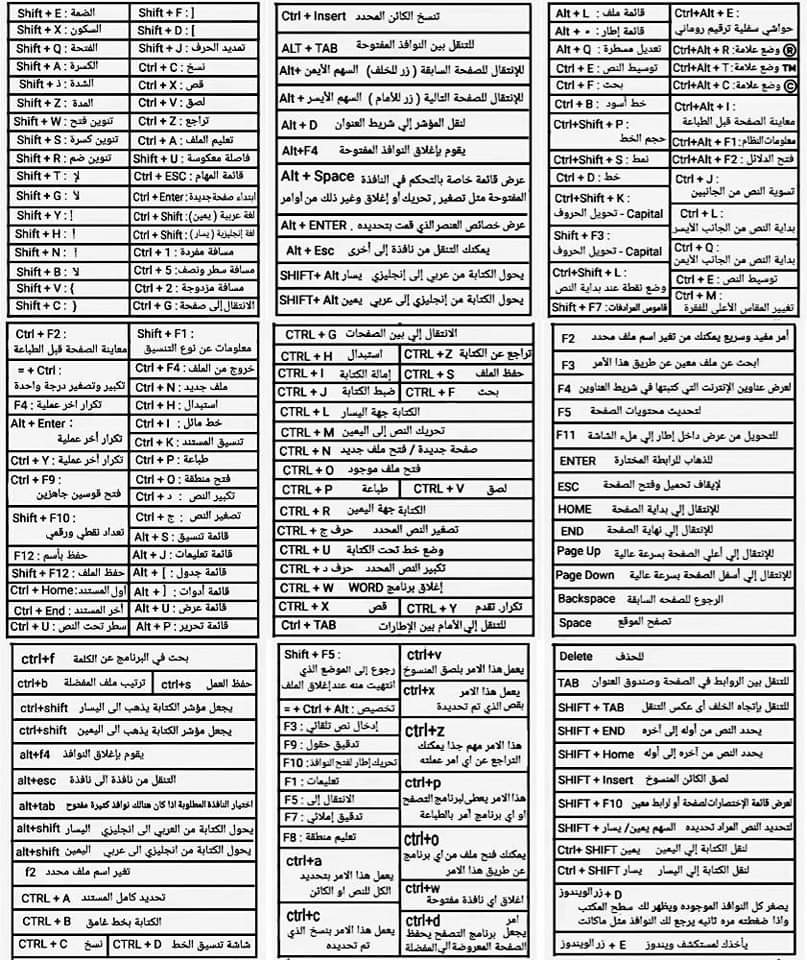 Shift + E : الضمة
Shift + F : ]
Shift + X : السكون
Shift + D : [
Shift + Q : الفتحة
Shift + J : تمديد الحرف
Shift + A : الكسرة
Ctrl + C : نسخ
Shift + ذ : الشدة
Ctrl + X : قص
Shift + Z : المدة
Ctrl + V : لصق
Shift + W : تنوين فتح
Ctrl + Z : تراجع
Shift + S : تنوين كسرة
Ctrl + A : تعليم الملف
Shift + R : تنوين ضم
Shift + U : فاصلة معكوسة
Shift + T : لإ
Ctrl + ESC : قائمة المهام
Shift + G : لأ
Ctrl + Enter : ابتداء صفحة جديدة
Shift + Y : !
Ctrl + Shift : لغة عربية ( يمين)
Shift + H : أ
Ctrl + Shift : لغة إنجليزية ( يسار)
Shift + N : آ
Ctrl + 1 : مسافة مفردة
Shift + B : لآ
Ctrl + 5 : مسافة سطر ونصف
Shift + V : {
Ctrl + 2 : مسافة مزدوجة
Shift + C : }
Ctrl + G : الانتقال إلى صفحة
Ctrl + Insert تنسخ الكائن المحدد
ALT + TAB للتنقل بين النوافذ المفتوحة
Alt+ للإنتقال للصفحة السابقة ( زر للخلف) السهم الأيمن
Alt + للإنتقال للصفحة التالية ( زر للأمام ) السهم الأيسر
Alt + D لنقل المؤشر إلي شريط العنوان
Alt+F4 يقوم بإغلاق النوافذ المفتوحة
Alt + Space عرض قائمة خاصة بالتحكم في النافذة
المفتوحة مثل تصغير , تحريك أو إغلاق وغير ذلك من أوامر
Alt + ENTER عرض خصائص العنصر الذي قمت بتحديده .
Alt + Esc يمكنك التنقل من نافذة إلى أخرى
SHIFT+ Alt يحول الكتابة من عربي إلى إنجليزي يسار
SHIFT+ Alt يحول الكتابة من إنجليزي إلى عربي يمين
Alt + L : قائمة ملف
Ctrl+Alt + E :
حواشي سفلية ترقيم روماني
Alt + ٠ : قائمة إطار
Alt + Q : تعديل مسطرة
Ctrl+Alt + R : وضع علامة ®
Ctrl + E : توسيط النص
Ctrl+Alt + T : وضع علامة ™
Ctrl + F : بحث
Ctrl+Alt + C : وضع علامة ©
Ctrl + B : خط أسود
Ctrl+Alt + I :
معاينة الصفحة قبل الطباعة
Ctrl+Shift + P :
حجم الخط
Ctrl+Alt + F1 : معلومات النظام
Ctrl+Shift + S : نمط
Ctrl+Alt + F2 : فتح الدلائل
Ctrl + D : خط
Ctrl + J :
تسوية النص من الجانبين
Ctrl+Shift + K :
تحويل الحروف - Capital
Ctrl + L :
بداية النص من الجانب الأيسر
Shift + F3 :
تحويل الحروف - Capital
Ctrl + Q :
بداية النص من الجانب الأيمن
Ctrl+Shift + L :
وضع نقطة عند بداية النص
Ctrl + E : توسيط النص
Shift + F7 : قاموس المرادفات
Ctrl + M :
تغيير المقاس الأعلى للفقرة
Ctrl + F2 :
معاينة الصفحة قبل الطباعة
Shift + F1 :
معلومات عن نوع التنسيق
= + Ctrl :
تكبير وتصغير درجة واحدة
Ctrl + F4 : خروج من الملف
Ctrl + N : ملف جديد
F4 : تكرار اخر عملية
Ctrl + H : استبدال
Alt + Enter :
تكرار أخر عملية
Ctrl + I : خط مائل
Ctrl + K : تنسيق المستند
Ctrl + Y : تكرار أخر عملية
Ctrl + P : طباعة
Ctrl + F9 :
فتح قوسين جاهزين
Ctrl + O : فتح منطقة
Ctrl + د : تكبير النص
Shift + F10 :
تعداد نقطي ورقمي
Ctrl + ج : تصغير النص
Alt + S : قائمة تنسيق
F12 : حفظ بأسم
Alt + J : قائمة تعليمات
Shift + F12 : حفظ الملف
Alt + [ : قائمة جدول
Ctrl + Home : أول المستند
Alt + ] : قائمة أدوات
Ctrl + End : أخر المستند
Alt + U : قائمة عرض
Ctrl + U : سطر تحت النص
Alt + P : قائمة تحرير
CTRL + G الانتقال إلي بين الصفحات
CTRL + H استبدال
CTRL + Z تراجع عن الكتابة
CTRL + I إمالة الكتابة
CTRL + S حفظ الملف
CTRL + J ضبط الكتابة
CTRL + F بحث
CTRL + L الكتابة جهة اليسار
CTRL + M تحريك النص إلى اليمين
CTRL + N صفحة جديدة / فتح ملف جديد
CTRL + O فتح ملف موجود
CTRL + P طباعة
CTRL + V لصق
CTRL + R الكتابة جهة اليمين
CTRL + تصغير النص المحدد حرف ج
CTRL + U وضع خط تحت الكتابة
CTRL + تكبير النص المحدد حرف د
CTRL + W إغلاق برنامج WORD
CTRL + X قص
CTRL + Y تكرار. تقدم
Ctrl + TAB للتنقل إلي الأمام بين الإطارات
F2 أمر مفيد وسريع يمكنك من تغير اسم ملف محدد
F3 ابحث عن ملف معين عن طريق هذا الأمر
F4 لعرض عناوين الإنترنت التي كتبتها في شريط العناوين
F5 لتحديث محتويات الصفحة
F11 للتحويل من عرض داخل إطار إلي ملء الشاشة
ENTER للذهاب للرابطة المختارة
ESC لإيقاف تحميل وفتح الصفحة
HOME للإنتقال إلي بداية الصفحة
END للإنتقال إلي نهاية الصفحة
Page Up للإنتقال إلي أعلي الصفحة بسرعة عالية
Page Down للإنتقال إلي أسفل الصفحة بسرعة عالية
Backspace الرجوع للصفحه السابقة
Space تصفح الموقع
ctrl+f بحث في البرنامج عن الكلمة
ctrl+b ترتيب ملف المفضلة
ctrl+s حفظ العمل
ctrl+shift يجعل مؤشر الكتابة يذهب الى اليسار
ctrl+shift يجعل مؤشر الكتابة يذهب الى اليمين
alt+f4 يقوم بإغلاق النوافذ
alt+esc التنقل من نافذة الى نافذة
alt+tab اختيار النافذة المطلوبة اذا كان هنالك نوافذ كثيرة مفتوح
alt+shift يحول الكتابة من العربي الى انجليزي اليسار
alt+shift يحول الكتابة من انجليزي الى عربي اليمين
f2 تغير اسم ملف محدد
CTRL + A تحديد كامل المستند
CTRL + B الكتابة بخط غامق
CTRL + C نسخ
CTRL + D شاشة تنسيق الخط
Shift + F5 :
رجوع إلى الموضع الذي
انتهيت منه عند إغلاق الملف
ctrl+v
يعمل هذا الامر بلصق المنسوخ
ctrl+x يعمل هذا الامر
بقص الذي تم تحديدة
= + Ctrl + Alt : تخصيص
F3 : إدخال نص تلقائي
F9 : تدقيق حقول
F10 : تحريك إطار لفتح النوافذ
ctrl+z
هذا الامر مهم جدا يمكنك
التراجع عن اي امر عملته
F1 : تعليمات
F5 : الانتقال إلى
F7 : تدقيق إملائي
F8 : تعليم منطقة
ctrl+p
هذا الامر يعطى لبرنامج التصفح
او اي برنامج أمر بالطباعة
ctrl+o
يمكنك فتح ملف من اي برنامج
عن طريق هذا الامر
ctrl+a
يعمل هذا الامر بتحديد
الكل للنص او الكائن
ctrl+w
اغلاق اي نافذة مفتوحة
ctrl+c
يعمل هذا الامر بنسخ الذي
تم تحديده
ctrl+d امر
يجعل برنامج التصفح يحفظ
الصفحة المعروضة الى المفضلة
Delete للحذف
TAB للتنقل بين الروابط في الصفحة وصندوق العنوان
SHIFT + TAB للتنقل بإتجاه الخلف أى عكس التنقل
SHIFT + END يحدد النص من أوله إلى آخره
SHIFT + Home يحدد النص من آخره إلى أوله
SHIFT + Insert لصق الكائن المنسوخ
SHIFT + F10 لعرض قائمة الإختصارات لصفحة أو لرابط معين
SHIFT + لتحديد النص المراد تحديده السهم يمين/ يسار
Ctrl+ SHIFT لنقل الكتابة إلي اليمين يمين
Ctrl + SHIFT لنقل الكتابة إلي اليسار يسار
زر الويندوز + D
يصغر كل النوافذ الموجوده ويظهر لك سطح المكتب
واذا ضغطته مره ثانيه يرجع لك النوافذ مثل ماكانت
زر الويندوز + E يأخذك لمستكشف ويندوز